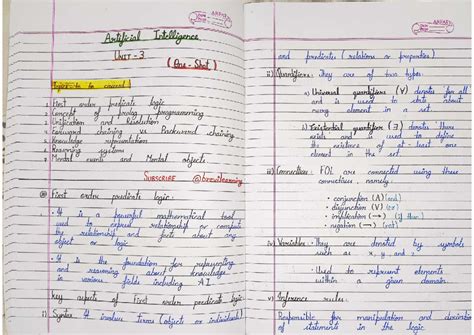 Artificial Intelligence
UNIT - 3
(One - Shot)
Topics to be covered:
1. First order predicate logic
2. Concept of prolog programming
3. Unification and Resolution
4. Forward chaining vs Backward chaining
5. Knowledge representation
6. Reasoning systems
7. Mental events and Mental objects
SUBSCRIBE
First order predicate logic :
• It is a powerful mathematical tool
used to express relationship or compute
the relationship and facts about any
object or logic.
• It is the foundation for representing
and reasoning about knowledge
in various fields including AI
Key aspects of First order predicate logic:
i) Syntax: It involves terms (objects or individual)
and predicates (relations or properties)
ii) Quantifiers: they are of two types
a) Universal quantifiers (∀) denotes for all
and is used to state about
every element in a set.
b) Existential quantifiers (∃) denotes there
exists and used to define
the existence of at-least one
element in the set.
iii) Connectives: FOL are connected using these
connectives, namely :
- conjunction (∧) (and)
- disjunction (∨) (or)
- implication (→) (if than)
- negation (¬) (not)
iv) Variables : They are denoted by symbols
such as x, y and z.
- Used to represent elements
within a given domain.
v) Inference rules:
Responsible for manipulation and derivation
of statement in the logic